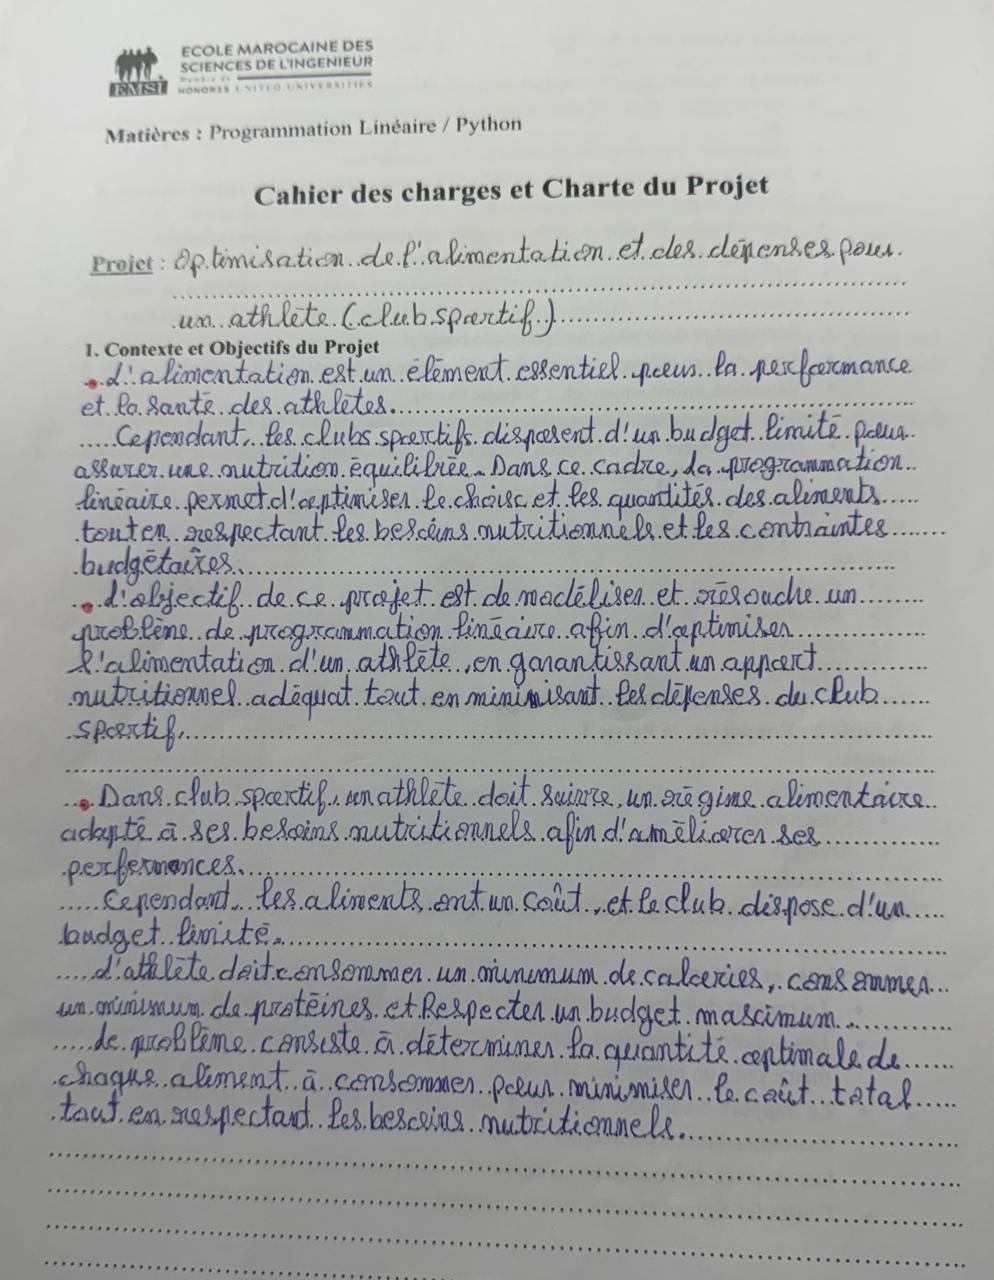 ECOLE MAROCAINE DES
SCIENCES DE L'INGENIEUR
Membre de
HONORIS UNITED UNIVERSITIES
EMSI
Matières : Programmation Linéaire / Python
Cahier des charges et Charte du Projet
Projet : Optimisation de l'alimentation et des dépenses pour
un athlète (club sportif)
1. Contexte et Objectifs du Projet
L'alimentation est un élément essentiel pour la performance
et la santé des athlètes.
Cependant, les clubs sportifs disposent d'un budget limité pour
assurer une nutrition équilibrée. Dans ce cadre, la programmation
linéaire permet d'optimiser le choix et les quantités des aliments
tout en respectant les besoins nutritionnels et les contraintes
budgétaires.
L'objectif de ce projet est de modéliser et résoudre un
problème de programmation linéaire afin d'optimiser
l'alimentation d'un athlète, en garantissant un apport
nutritionnel adéquat tout en minimisant les dépenses du club
sportif.
Dans club sportif, un athlète doit suivre un régime alimentaire
adapté à ses besoins nutritionnels afin d'améliorer ses
performances.
Cependant, les aliments ont un coût, et le club dispose d'un
budget limité.
L'athlète doit consommer un minimum de calories, consommer
un minimum de protéines et Respecter un budget maximum.
Le problème consiste à déterminer la quantité optimale de
chaque aliment à consommer pour minimiser le coût total
tout en respectant les besoins nutritionnels.